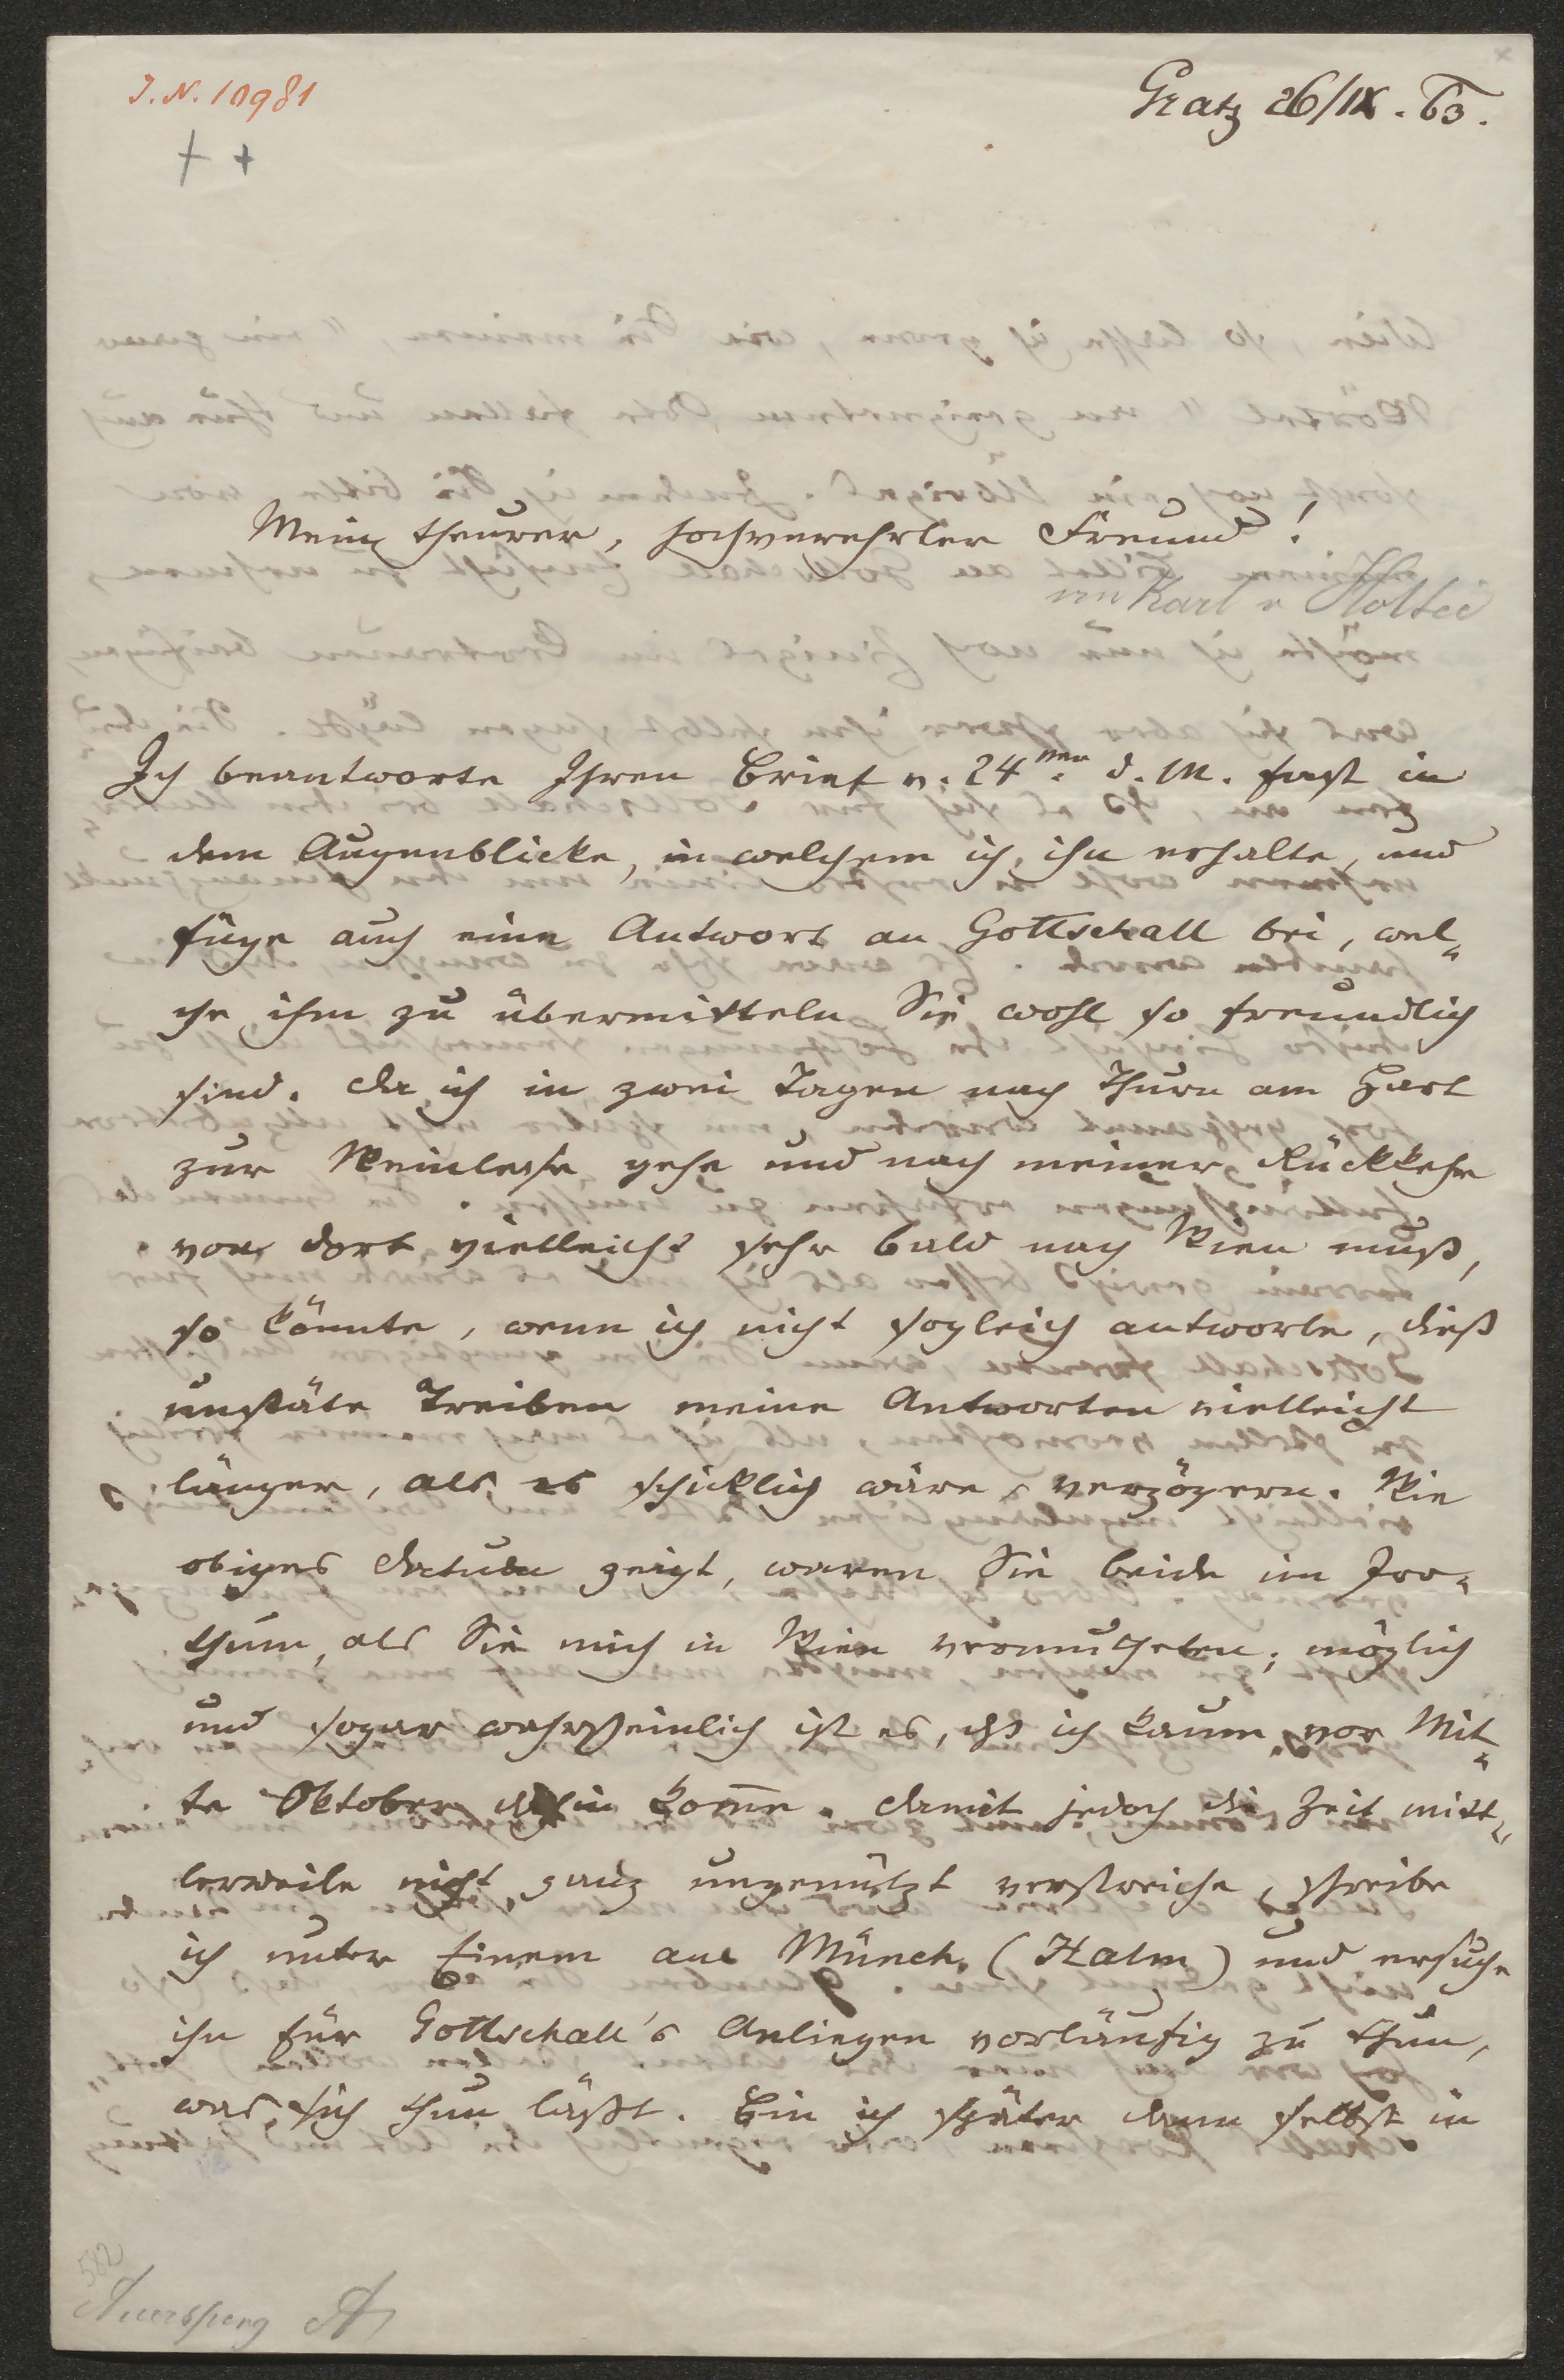 J. N. 10981
Gratz 26/IX. 63.
Mein theurer, hochverehrter Freund!
an Karl v Holtei
Ich beantworte Ihren Brief v. 24ten d. M. fast in
dem Augenblicke, in welchem ich ihn erhalte, und
füge auch eine Antwort an Gottschall bei, wel„
che ihm zu übermitteln Sie wohl so freundlich
sind. Da ich in zwei Tagen nach Thurn am Hart
zur Weinlese gehe und nach meiner Rückkehr
von dort vielleicht sehr bald nach Wien muß,
so könnte, wenn ich nicht sogleich antworte, dieß
unstäte Treiben meine Antworten vielleicht
länger, als es schicklich wäre, verzögern. Wie
obiges Datum zeigt, waren Sie beide im Irr„
thum, als Sie mich in Wien vermutheten; möglich
und sogar wahrscheinlich ist es, dß ich kaum vor Mit„
te Oktober dahin kom̅e. Damit jedoch die Zeit mitt„
lerweile nicht ganz ungenützt verstreiche, schreibe
ich unter Einem an Münch (Halm) und ersuche
ihn für Gottschall's Anliegen vorläufig zu thun,
was sich thun läßt. Bin ich später dann selbst in
582
Auersperg A